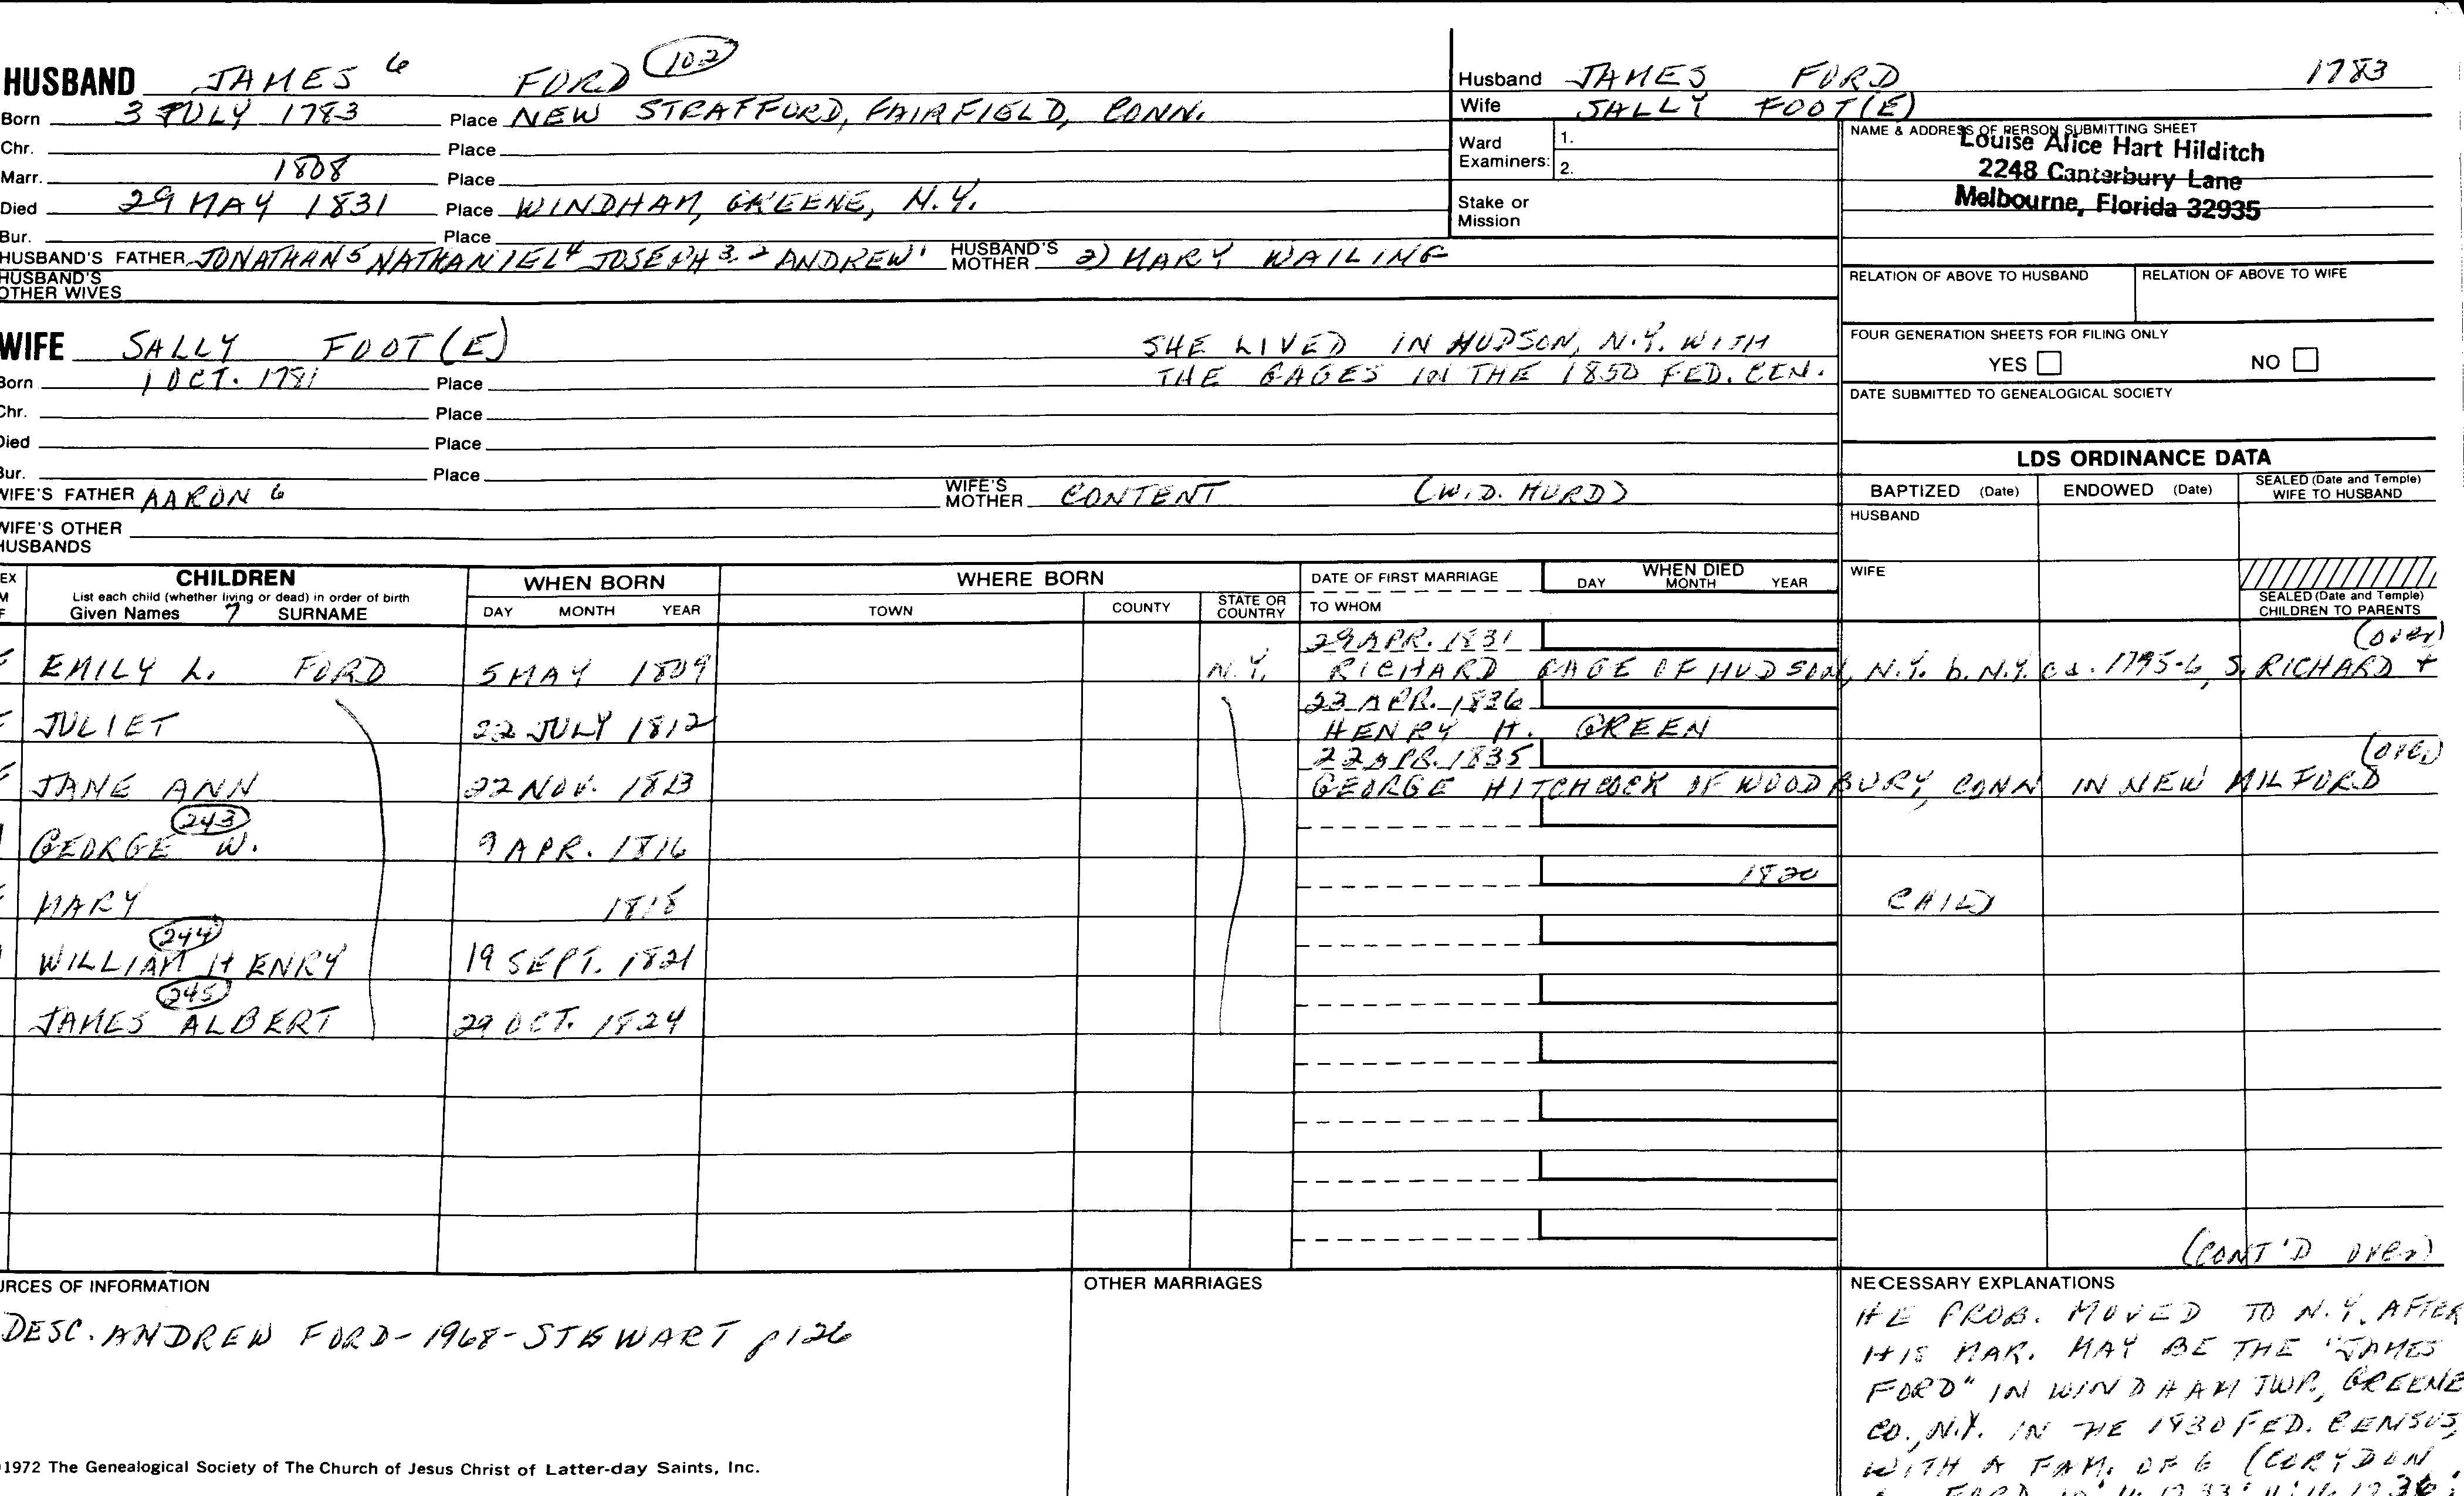 HUSBAND JAMES 6 FORD 102
Born 3 JULY 1783 Place NEW STRATFORD, FAIRFIELD, CONN.
Chr. Place
Marr. 1808 Place
Died 29 MAY 1831 Place WINDHAM, GREENE, N.Y.
Bur. Place
HUSBAND'S FATHER JONATHAN 5 NATHANIEL 4 JOSEPH 3, 2 ANDREW 1 HUSBAND'S MOTHER 2) MARY WAILING
HUSBAND'S OTHER WIVES
Husband JAMES FORD 1783
Wife SALLY FOOT(E)
Ward Examiners: 1.
2.
Stake or Mission
NAME & ADDRESS OF PERSON SUBMITTING SHEET
Louise Alice Hart Hilditch
2248 Canterbury Lane
Melbourne, Florida 32935
RELATION OF ABOVE TO HUSBAND RELATION OF ABOVE TO WIFE
FOUR GENERATION SHEETS FOR FILING ONLY
YES NO
DATE SUBMITTED TO GENEALOGICAL SOCIETY
WIFE SALLY FOOT(E) SHE LIVED IN HUDSON, N.Y. WITH
THE GAGES IN THE 1850 FED. CEN.
Born 1 OCT. 1781 Place
Chr. Place
Died Place
Bur. Place
WIFE'S FATHER AARON 6 WIFE'S MOTHER CONTENT (WID. HURD)
WIFE'S OTHER HUSBANDS
LDS ORDINANCE DATA
BAPTIZED (Date) ENDOWED (Date) SEALED (Date and Temple) WIFE TO HUSBAND
HUSBAND
WIFE
SEALED (Date and Temple) CHILDREN TO PARENTS
SEX M F
CHILDREN
List each child (whether living or dead) in order of birth
Given Names 7 SURNAME
WHEN BORN
DAY MONTH YEAR
WHERE BORN
TOWN COUNTY STATE OR COUNTRY
DATE OF FIRST MARRIAGE
TO WHOM
WHEN DIED
DAY MONTH YEAR
29 APR. 1831 (over)
F EMILY L. FORD 5 MAY 1809 N.Y. RICHARD GAGE OF HUDSON, N.Y. b. N.Y. ca. 1795-6, S. RICHARD +
23 APR. 1836
F JULIET 22 JULY 1812 HENRY H. GREEN
22 APR. 1835 (over)
F JANE ANN 22 NOV. 1813 GEORGE HITCHCOCK OF WOODBURY, CONN IN NEW MILFORD
243
GEORGE W. 9 APR. 1816
1820
F MARY 1818 CHILD
244
WILLIAM HENRY 19 SEPT. 1821
245
JAMES ALBERT 29 OCT. 1824
(CONT'D over)
URCES OF INFORMATION
DESC. ANDREW FORD-1968-STEWART p126
OTHER MARRIAGES
NECESSARY EXPLANATIONS
HE PROB. MOVED TO N.Y. AFTER
HIS MAR. MAY BE THE "JAMES
FORD" IN WINDHAM TWP., GREENE
CO., N.Y. IN THE 1830 FED. CENSUS,
WITH A FAM. OF 6 (CORYDON
1972 The Genealogical Society of The Church of Jesus Christ of Latter-day Saints, Inc.